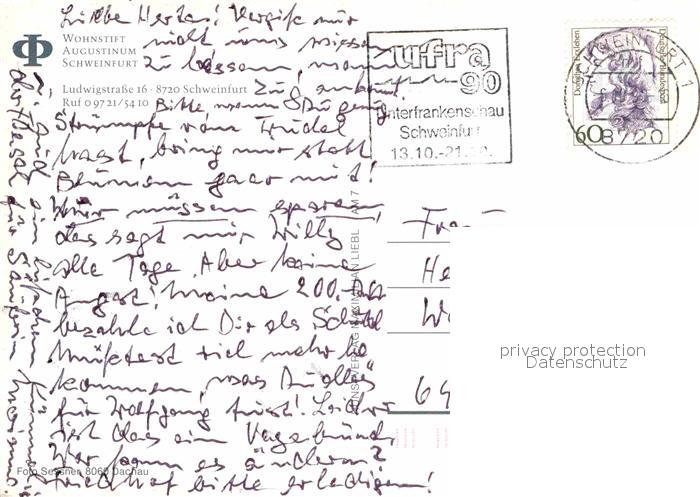 Liebe Herta! Vergiß mir
nicht uns wissen
zu lassen, wann
Zug ankommt.
Bitte, wenn Du genug
Strümpfe von Trudel
hast, bring mir statt
Blumen paar mit!
Wir müssen sparen,
das sagt mir Willy
alle Tage. Aber keine
Angst! Meine 200.-
bezahle ich Dir als Schuld
Müßtest viel mehr be
kommen, was Du alles
für Wolfgang tust! Leider
ist das ein Vagabund,
Wer kann es ändern?
Friedhof bitte erledigen!
WOHNSTIFT
AUGUSTINUM
SCHWEINFURT
Ludwigstraße 16 · 8720 Schweinfurt
Ruf 0 97 21/54 10
ufra
90
Unterfrankenschau
Schweinfurt
13.10.-21.10.
SCHWEINFURT 1
8720
Deutsche Bundespost
60
KUNSTVERLAG MAXIMILIAN LIEBL AM 7
Frau
He
W
64
privacy protection
Datenschutz
Foto Sessner, 8060 Dachau